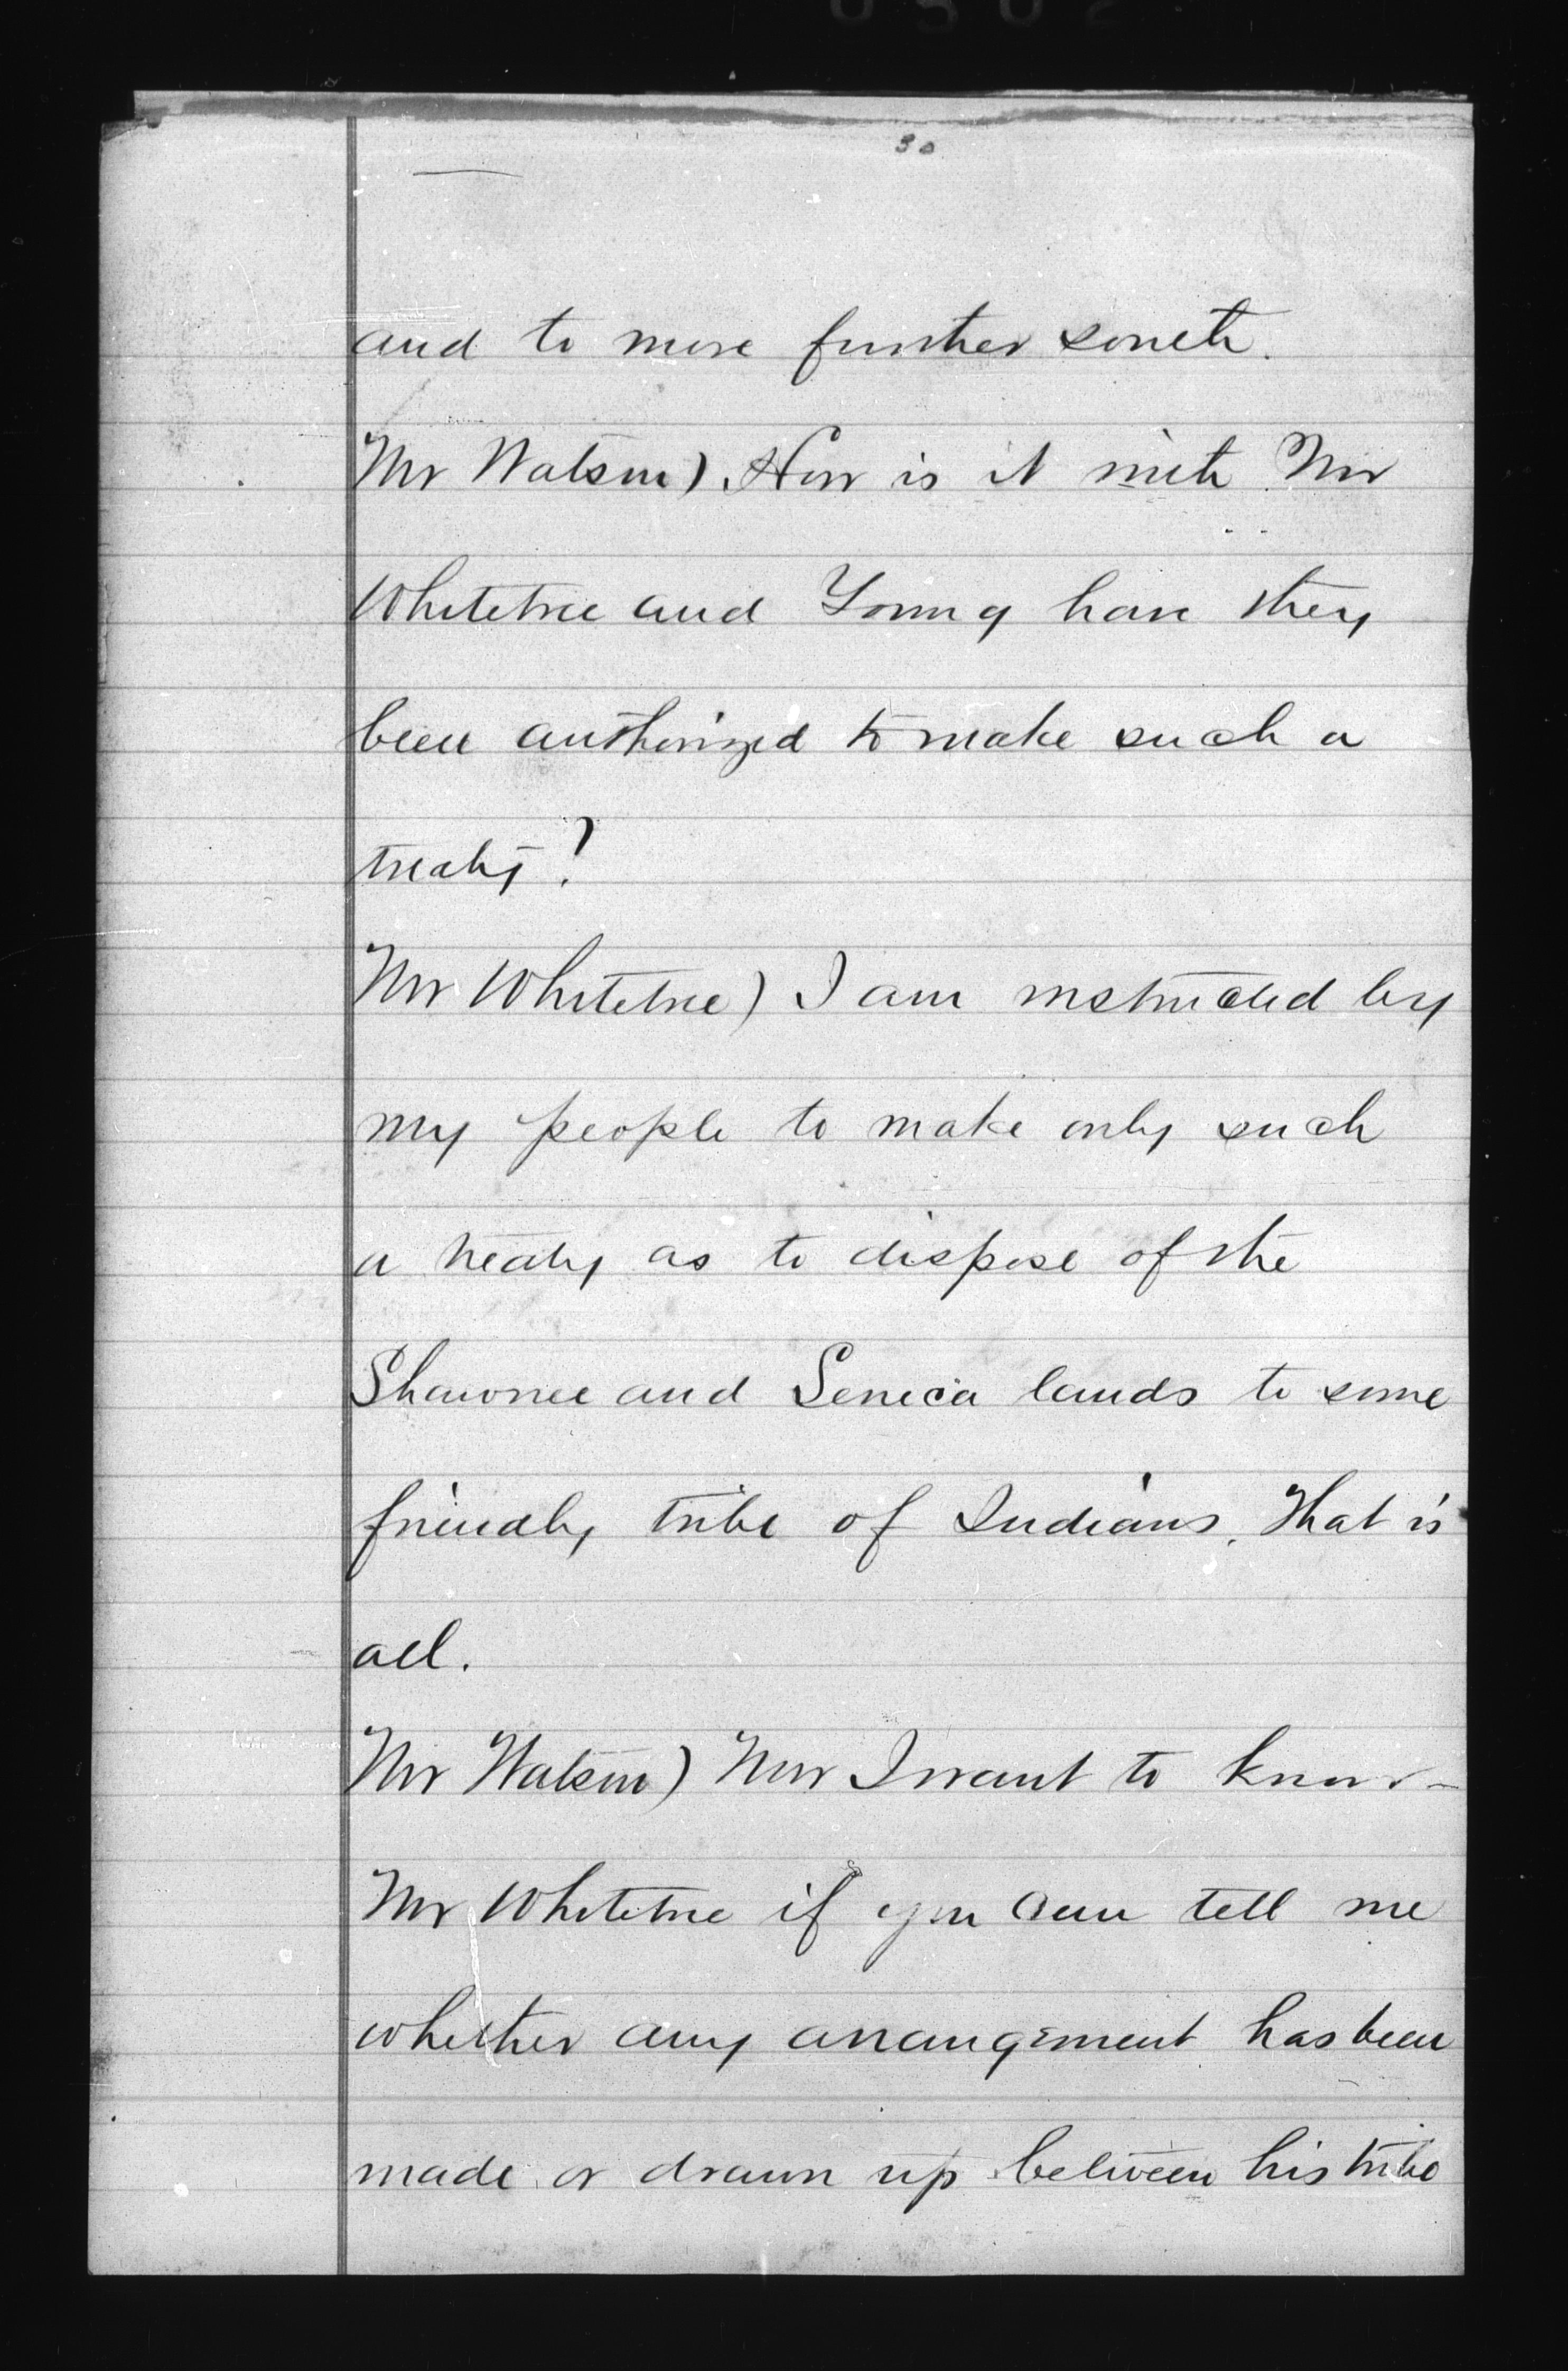 30
and to move further south.
Mr Watson) How is it with Mr
Whitetree and Young have they
been authorized to make such a
treaty?
Mr Whitetree) I am instructed by
my people to make only such
a treaty as to dispose of the
Shawnee and Seneca lands to some
friendly tribe of Indians. That is
all.
Mr Watson) Now I want to know
Mr Whitetree if you can tell me
whether any arrangement has been
made or drawn up between his tribe